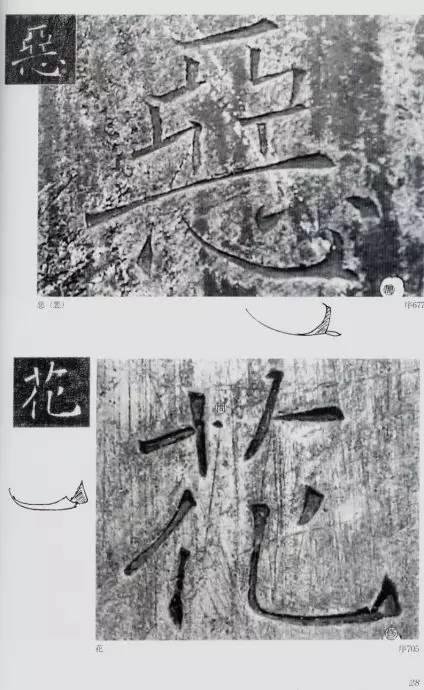 惡
惡
惡（悪）
序677
花
花
花
序705
28